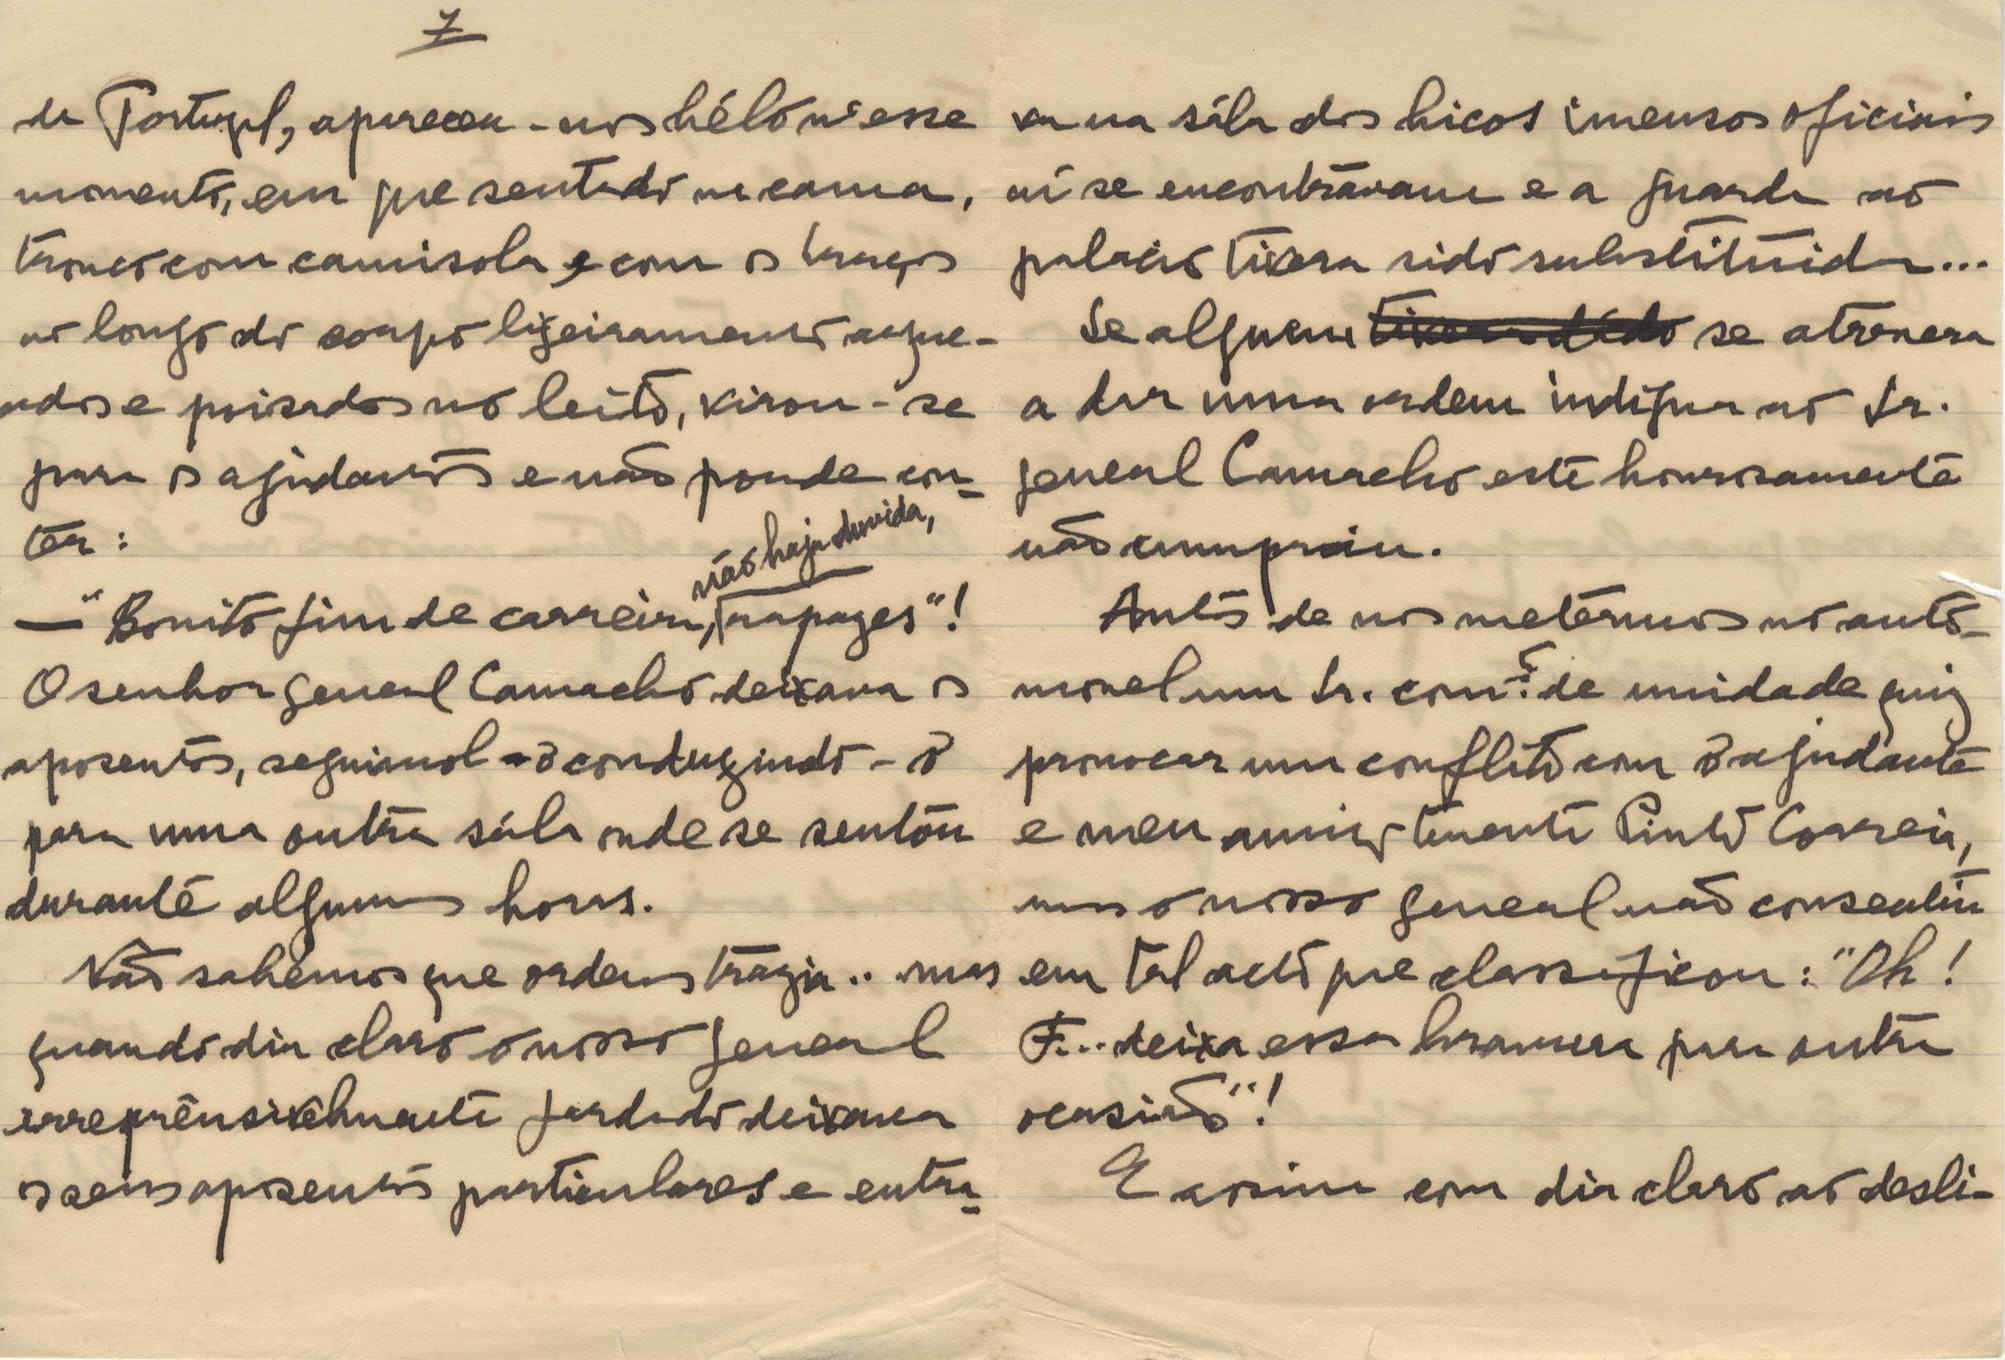 7
de Portugal, apareceu-nos bélo n'esse
momento, em que sentado na cama,
tronco com camisola e com os braços
ao longo do corpo ligeiramente arque-
ados e poisados no leito, virou-se
para os ajudantes e não poude con-
ter:
não haja duvida,
— "Bonito fim de carreira, rapazes"!
O senhor general Camacho deixava os
aposentos, conduzindo-o
para uma outra sála onde se sentou
durante algumas horas.
Não sabemos que ordens trazia... mas
quando dia claro o nosso general
irreprênsivelmente fardado deixava
os seus aposentos particulares e entra-
va na sála dos bicos imensos oficiais
aí se encontrávam e a guarda ao
palacio tivera sido substituida...
Se alguem se atrevera
a dar uma ordem indigna ao Sr.
general Camacho este honrosamente
não cumpriu.
Antes de nos metermos no auto-
movel um Sr. com.te de unidade quiz
provocar um conflito com o ajudante
e meu amigo tenente Pinto Correia,
mas o nosso general não consentiu
em tal acto que classificou: "Oh!
F... deixa essa bravura para outra
ocasião"!
E assim com dia claro ao desli-